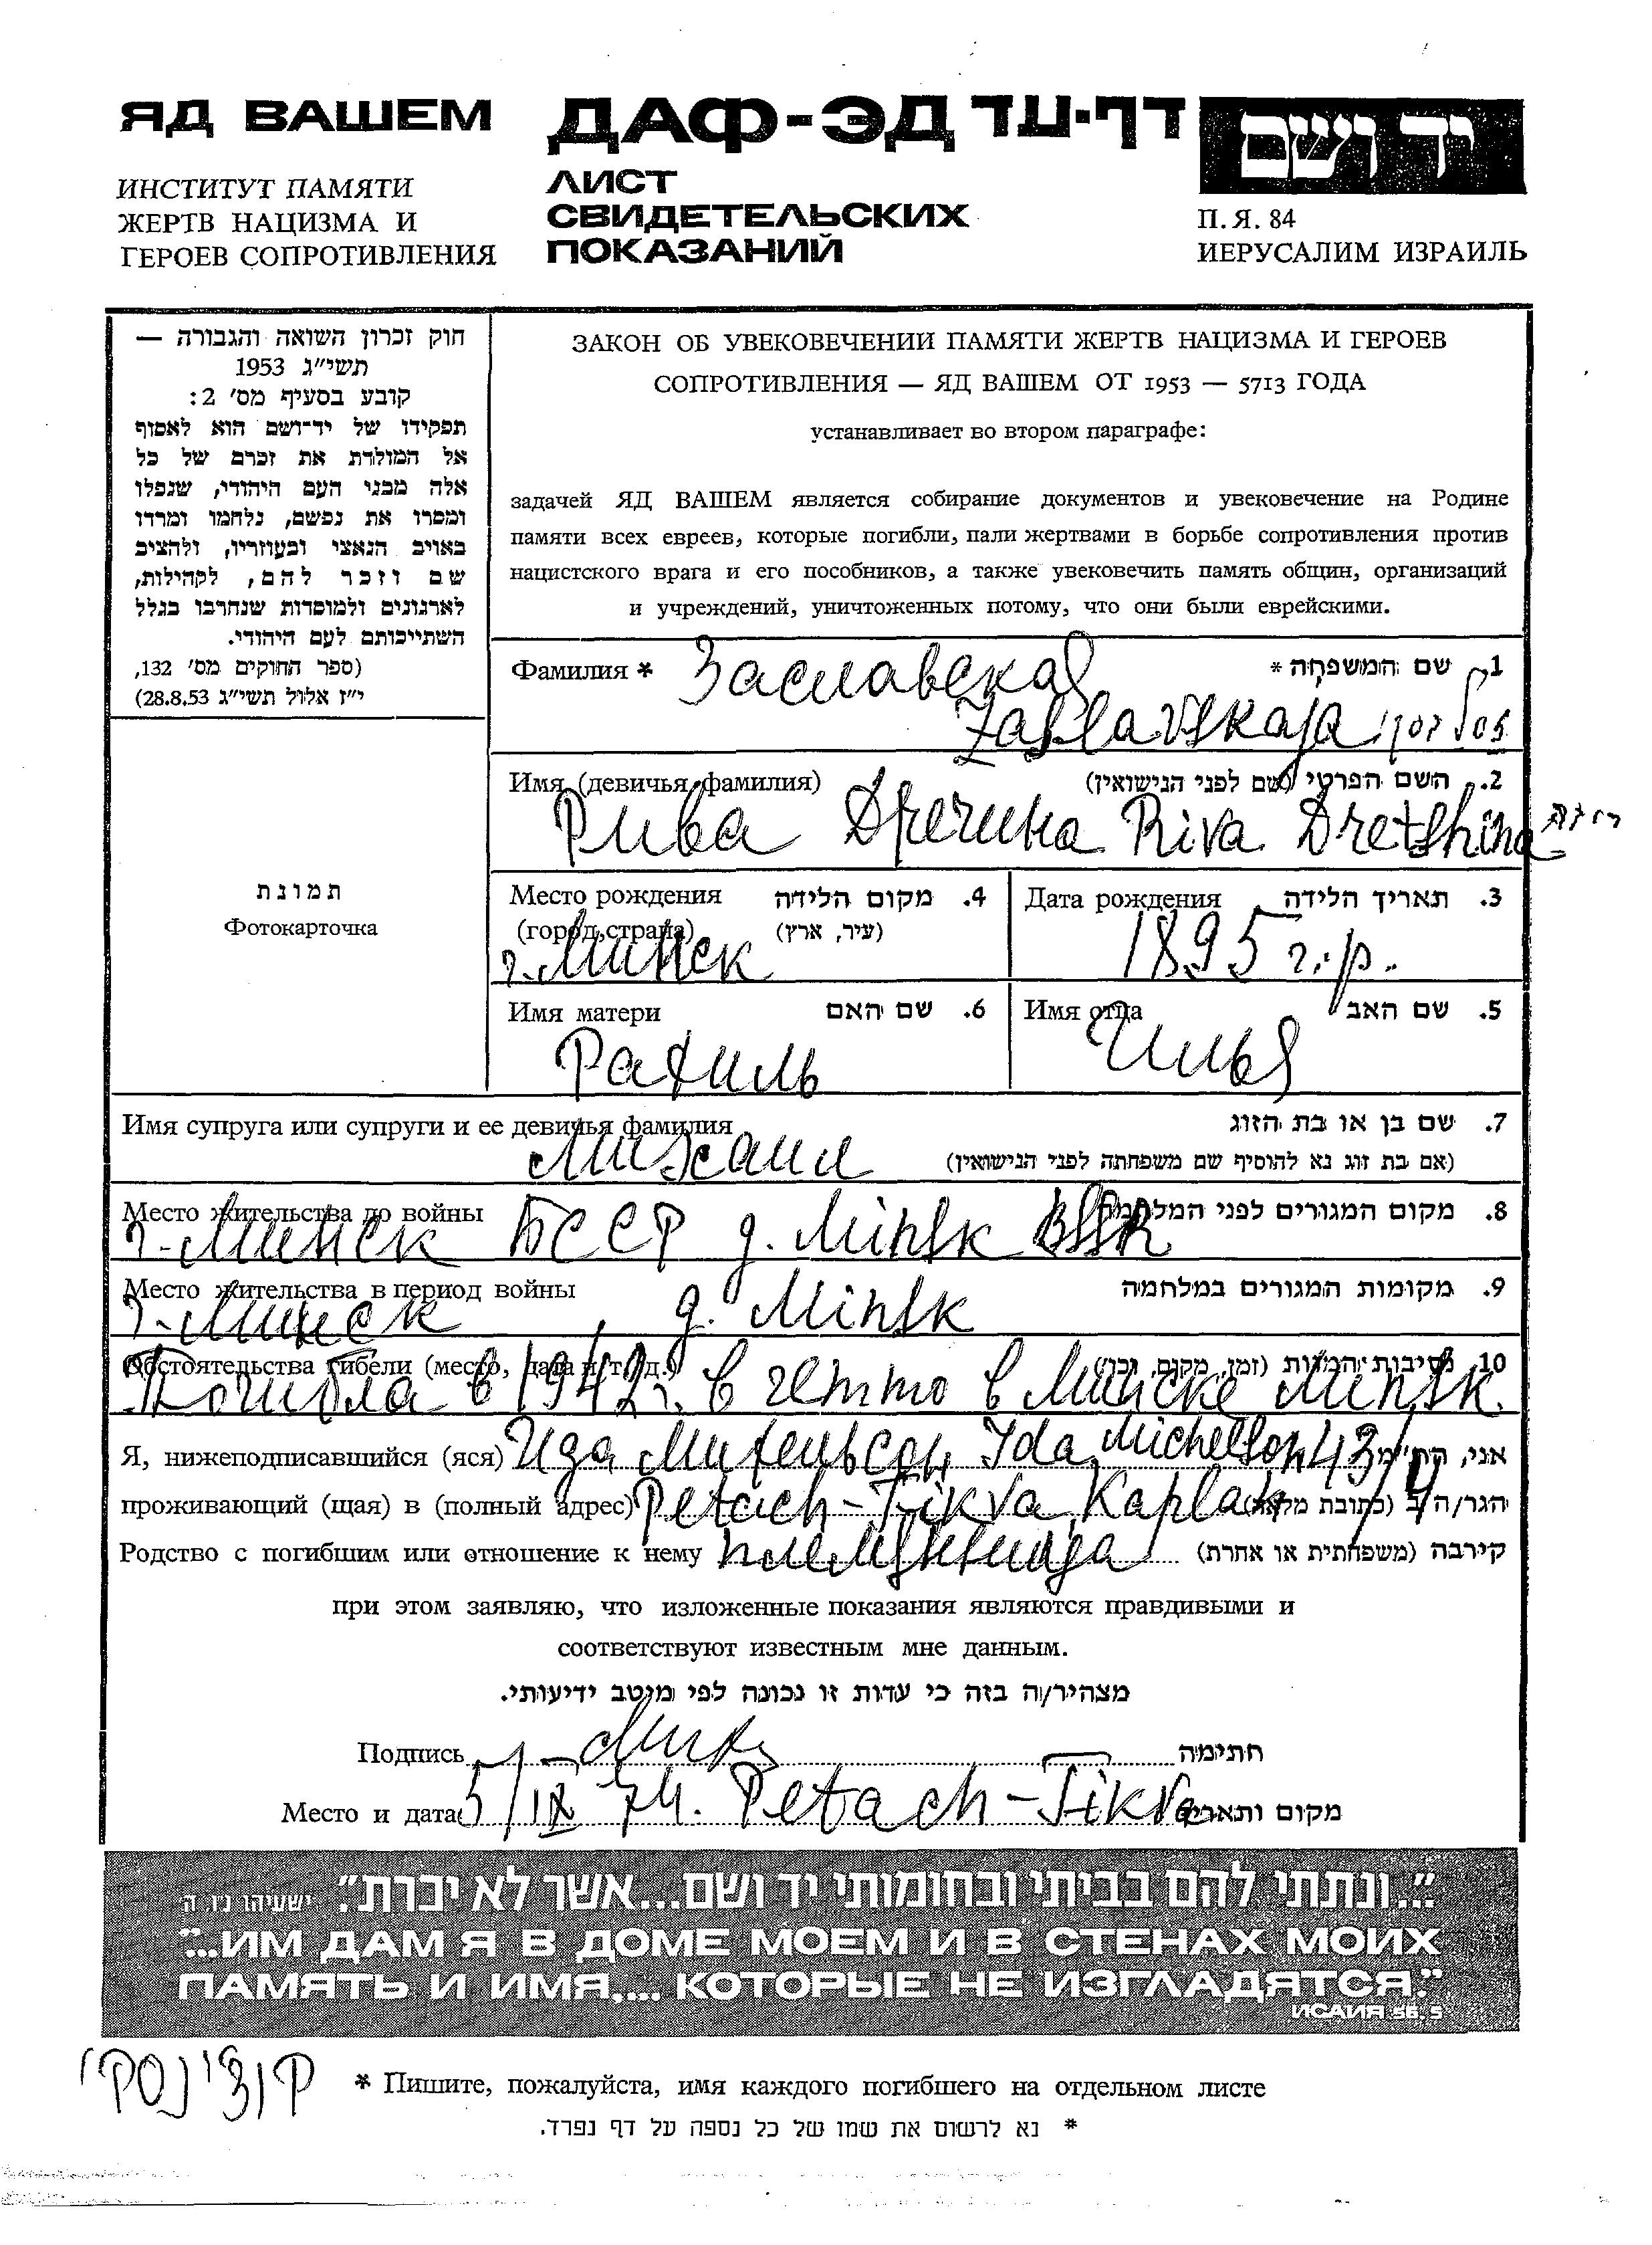 ЯД ВАШЕМ
ИНСТИТУТ ПАМЯТИ
ЖЕРТВ НАЦИЗМА И
ГЕРОЕВ СОПРОТИВЛЕНИЯ
ДАФ-ЭД דף-עד
ЛИСТ
СВИДЕТЕЛЬСКИХ
ПОКАЗАНИЙ
יד ושם
П.Я. 84
ИЕРУСАЛИМ ИЗРАИЛЬ
חוק זכרון השואה והגבורה —
תשי״ג 1953
קובע בסעיף מס׳ 2:
תפקידו של יד־ושם הוא לאסוף
אל המולדת את זכרם של כל
אלה מבני העם היהודי, שנפלו
ומסרו את נפשם, נלחמו ומרדו
באויב הנאצי ובעוזריו, ולהציב
שם וזכר להם, לקהילות,
לארגונים ולמוסדות שנחרבו בגלל
השתייכותם לעם היהודי.
(ספר החוקים מס׳ 132,
י״ז אלול תשי״ג 28.8.53)
תמונת
Фотокарточка
ЗАКОН ОБ УВЕКОВЕЧЕНИИ ПАМЯТИ ЖЕРТВ НАЦИЗМА И ГЕРОЕВ
СОПРОТИВЛЕНИЯ — ЯД ВАШЕМ ОТ 1953 — 5713 ГОДА
устанавливает во втором параграфе:
задачей ЯД ВАШЕМ является собирание документов и увековечение на Родине
памяти всех евреев, которые погибли, пали жертвами в борьбе сопротивления против
нацистского врага и его пособников, а также увековечить память общин, организаций
и учреждений, уничтоженных потому, что они были еврейскими.
Фамилия * Заславская 1. שם המשפחה *
Zaslavskaja
Имя (девичья фамилия) 2. השם הפרטי (שם לפני הנישואין)
Рива Дречина Riva Dretshina
Место рождения 4. מקום הלידה
(город, страна) (עיר, ארץ)
г. Минск
Дата рождения 3. תאריך הלידה
1895 г.р.
Имя матери 6. שם האם
Рахиль
Имя отца 5. שם האב
Илья
Имя супруга или супруги и ее девичья фамилия 7. שם בן או בת הזוג
Михаил (אם בת זוג נא להוסיף שם משפחתה לפני הנישואין)
Место жительства до войны 8. מקום המגורים לפני המלחמה
г. Минск БССР g. Minsk BSSR
Место жительства в период войны 9. מקומות המגורים במלחמה
г. Минск, g. Minsk
Обстоятельства гибели (место, дата и т.д.) 10. נסיבות המוות (זמן, מקום, וכו׳)
Погибла в 1942 г. в гетто в Минске Minsk.
Я, нижеподписавшийся (яся) Ида Михельсон Ida Michelson 43/4 אני, הח״מ
проживающий (щая) в (полный адрес) Petach-Tikva, Kaplan הגר/ה ב (כתובת מלאה)
Родство с погибшим или отношение к нему племянница קירבה (משפחתית או אחרת)
при этом заявляю, что изложенные показания являются правдивыми и
соответствуют известным мне данным.
מצהיר/ה בזה כי עדות זו נכונה לפי מיטב ידיעותי.
Подпись חתימה
Место и дата 5/IX 74. Petach-Tikva מקום ותאריך
״...ונתתי להם בביתי ובחומותי יד ושם...אשר לא יכרת״. ישעיהו נ״ו, ה׳
"...ИМ ДАМ Я В ДОМЕ МОЕМ И В СТЕНАХ МОИХ
ПАМЯТЬ И ИМЯ.... КОТОРЫЕ НЕ ИЗГЛАДЯТСЯ."
ИСАИЯ 56, 5
* Пишите, пожалуйста, имя каждого погибшего на отдельном листе
* נא לרשום את שמו של כל נספה על דף נפרד.